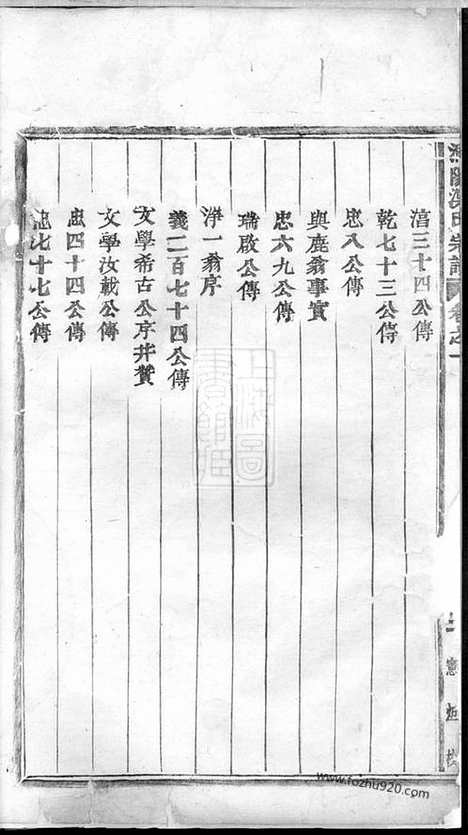 宗譜
卷之一
三十四公傳
乾七十三公傳
忠八公傳
與鹿翁事實
忠六九公傳
瑞啟公傳
淨一翁序
義二百七十四公傳
文學希古公序并贊
文學汝載公傳
忠四十四公傳
忠七十七公傳
www.fozhu920.com